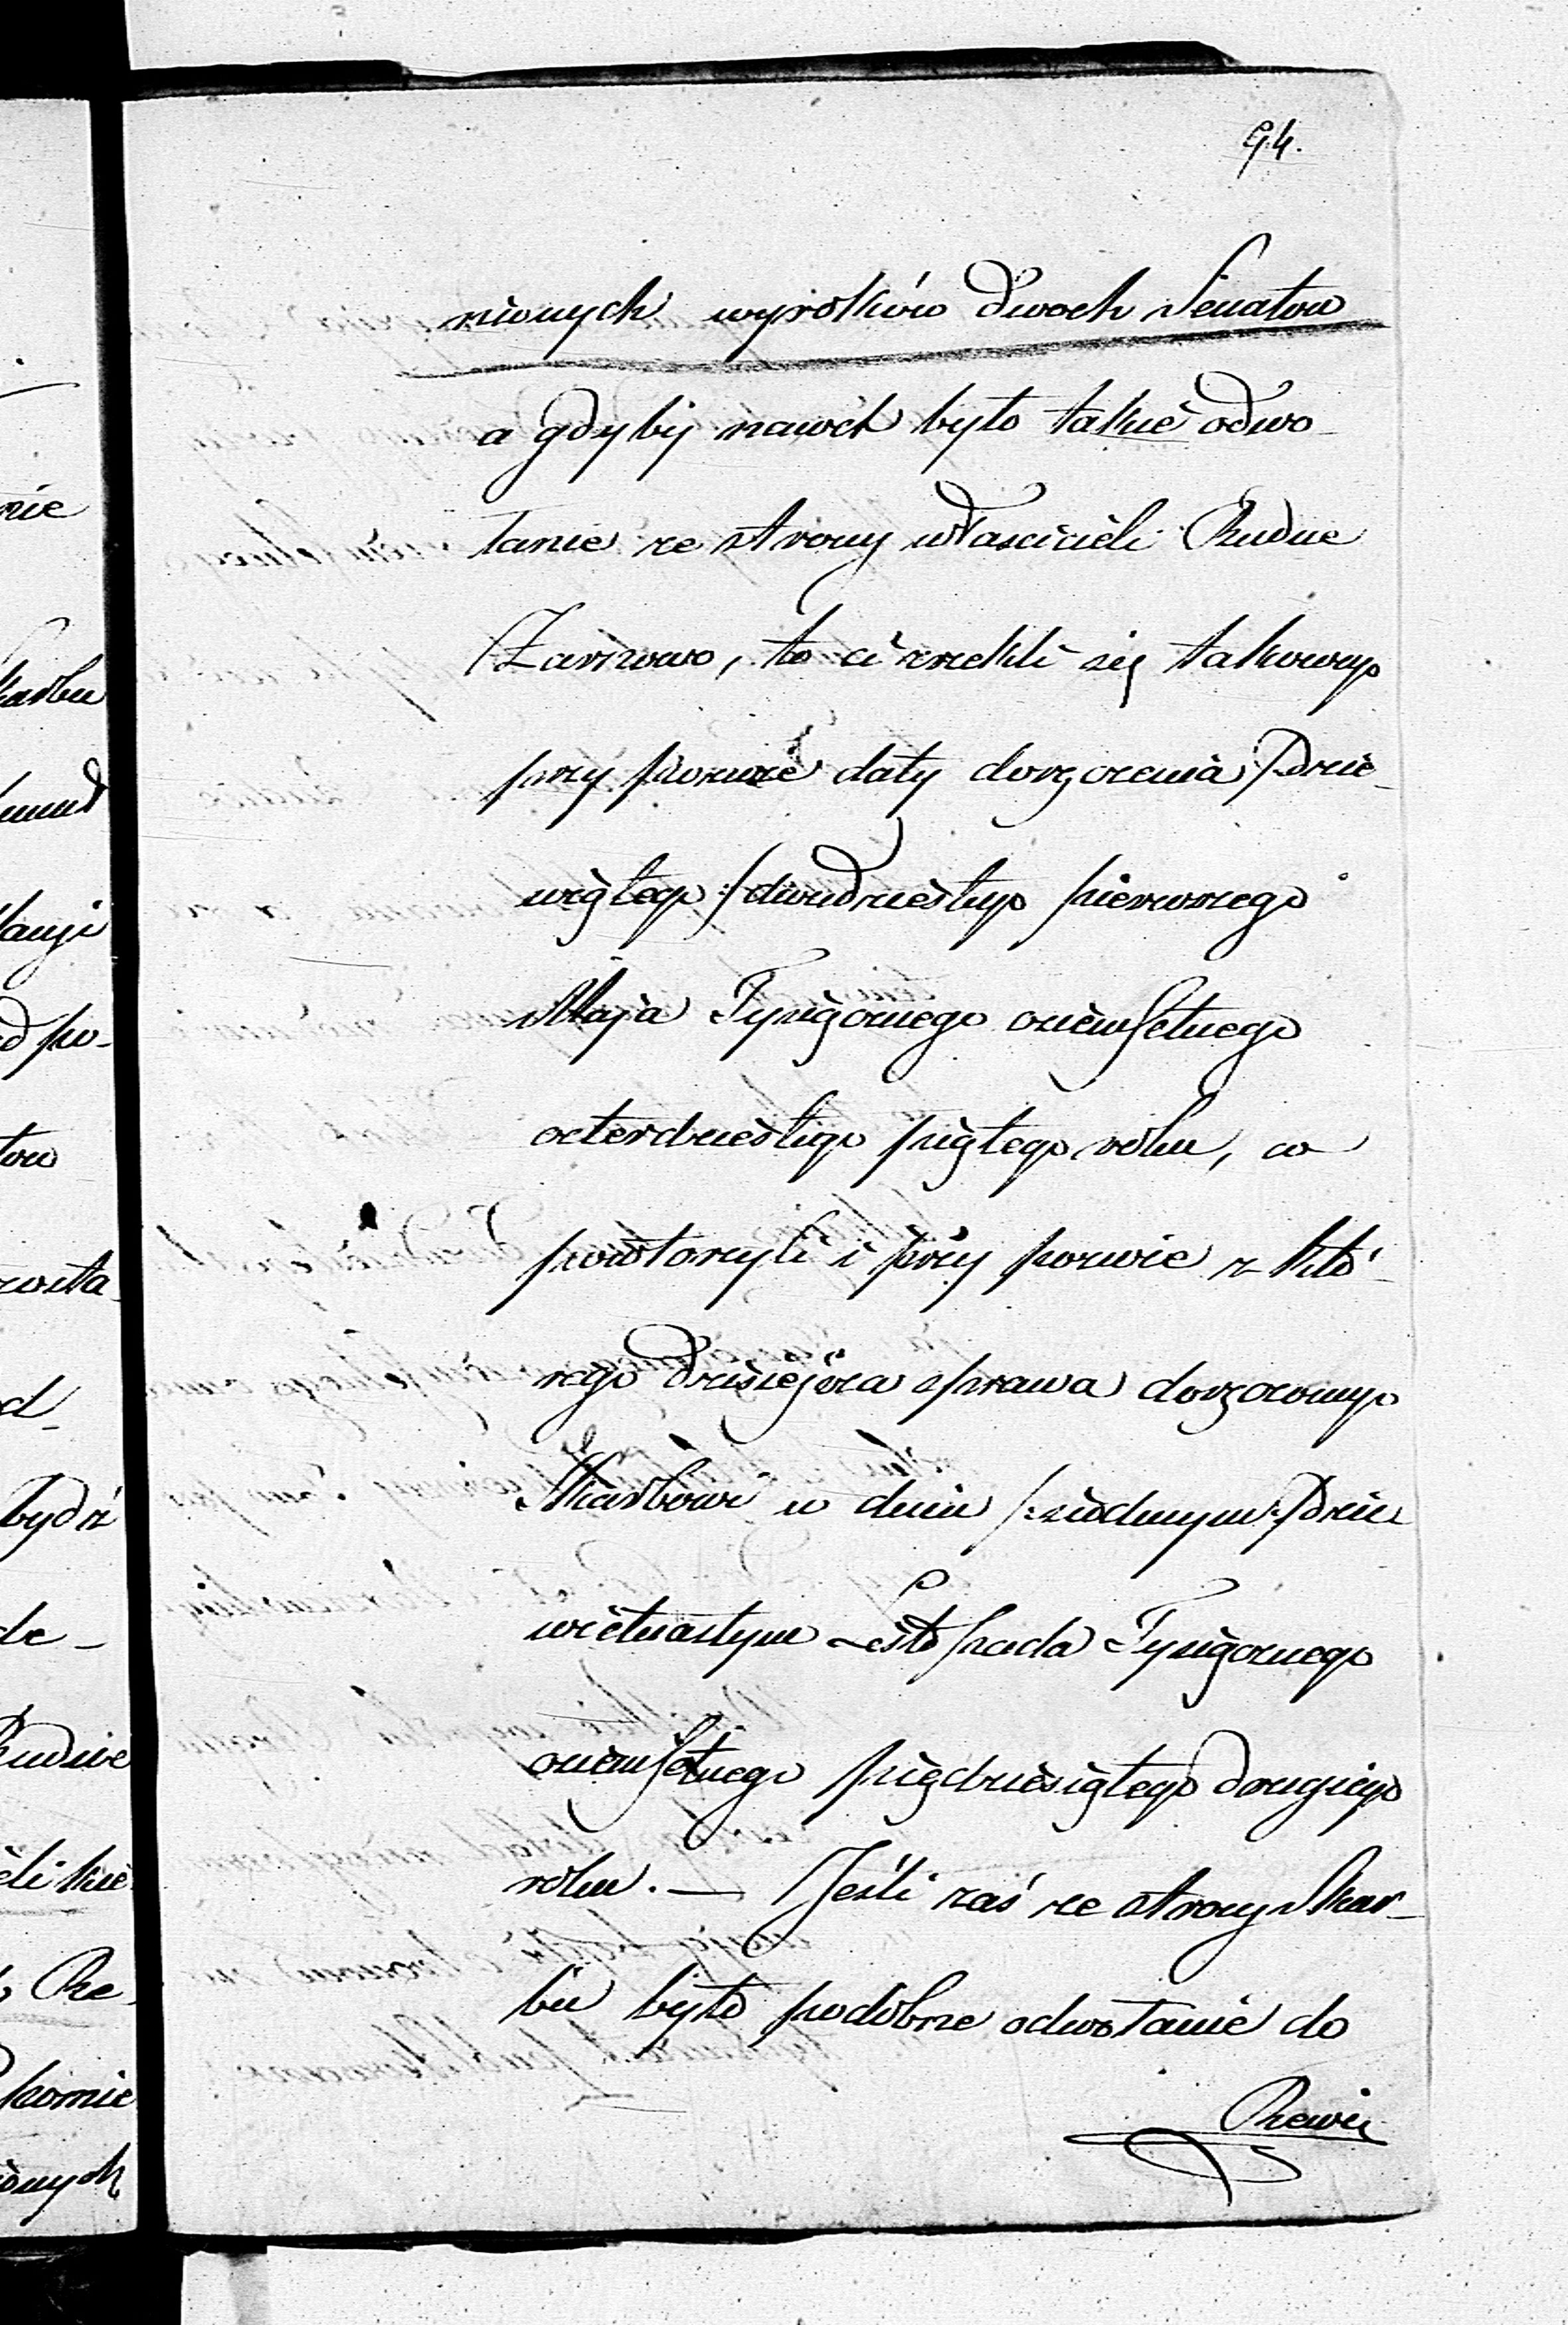 94.
nionych wyroków dwoch Senatow
a gdyby nawet było takie odwo-
łanie ze strony włascicieli Rudne
Żarnowo, to ci zrzekli się takowego
przy pozwie daty doręczenia /:dzie-
wiątego:/ dwudziestego pierwszego
Maja Tysiącznego ośmsetnego
czterdziestego piątego roku, co
powtorzyli i przy pozwie z któ-
rego dzisiejsza sprawa doręczonym
Skarbowi w dniu /:siodmym:/ dzie
wietnastym Listopada Tysiącznego
ośmsetnego pięcdziesiątego drugiego
roku. — Jeśli zaś ze strony Skar-
bu było podobne odwołanie do
Rewi
nie
karbu
d po-
tow
d-
bydź
de-
Rudne
Re-